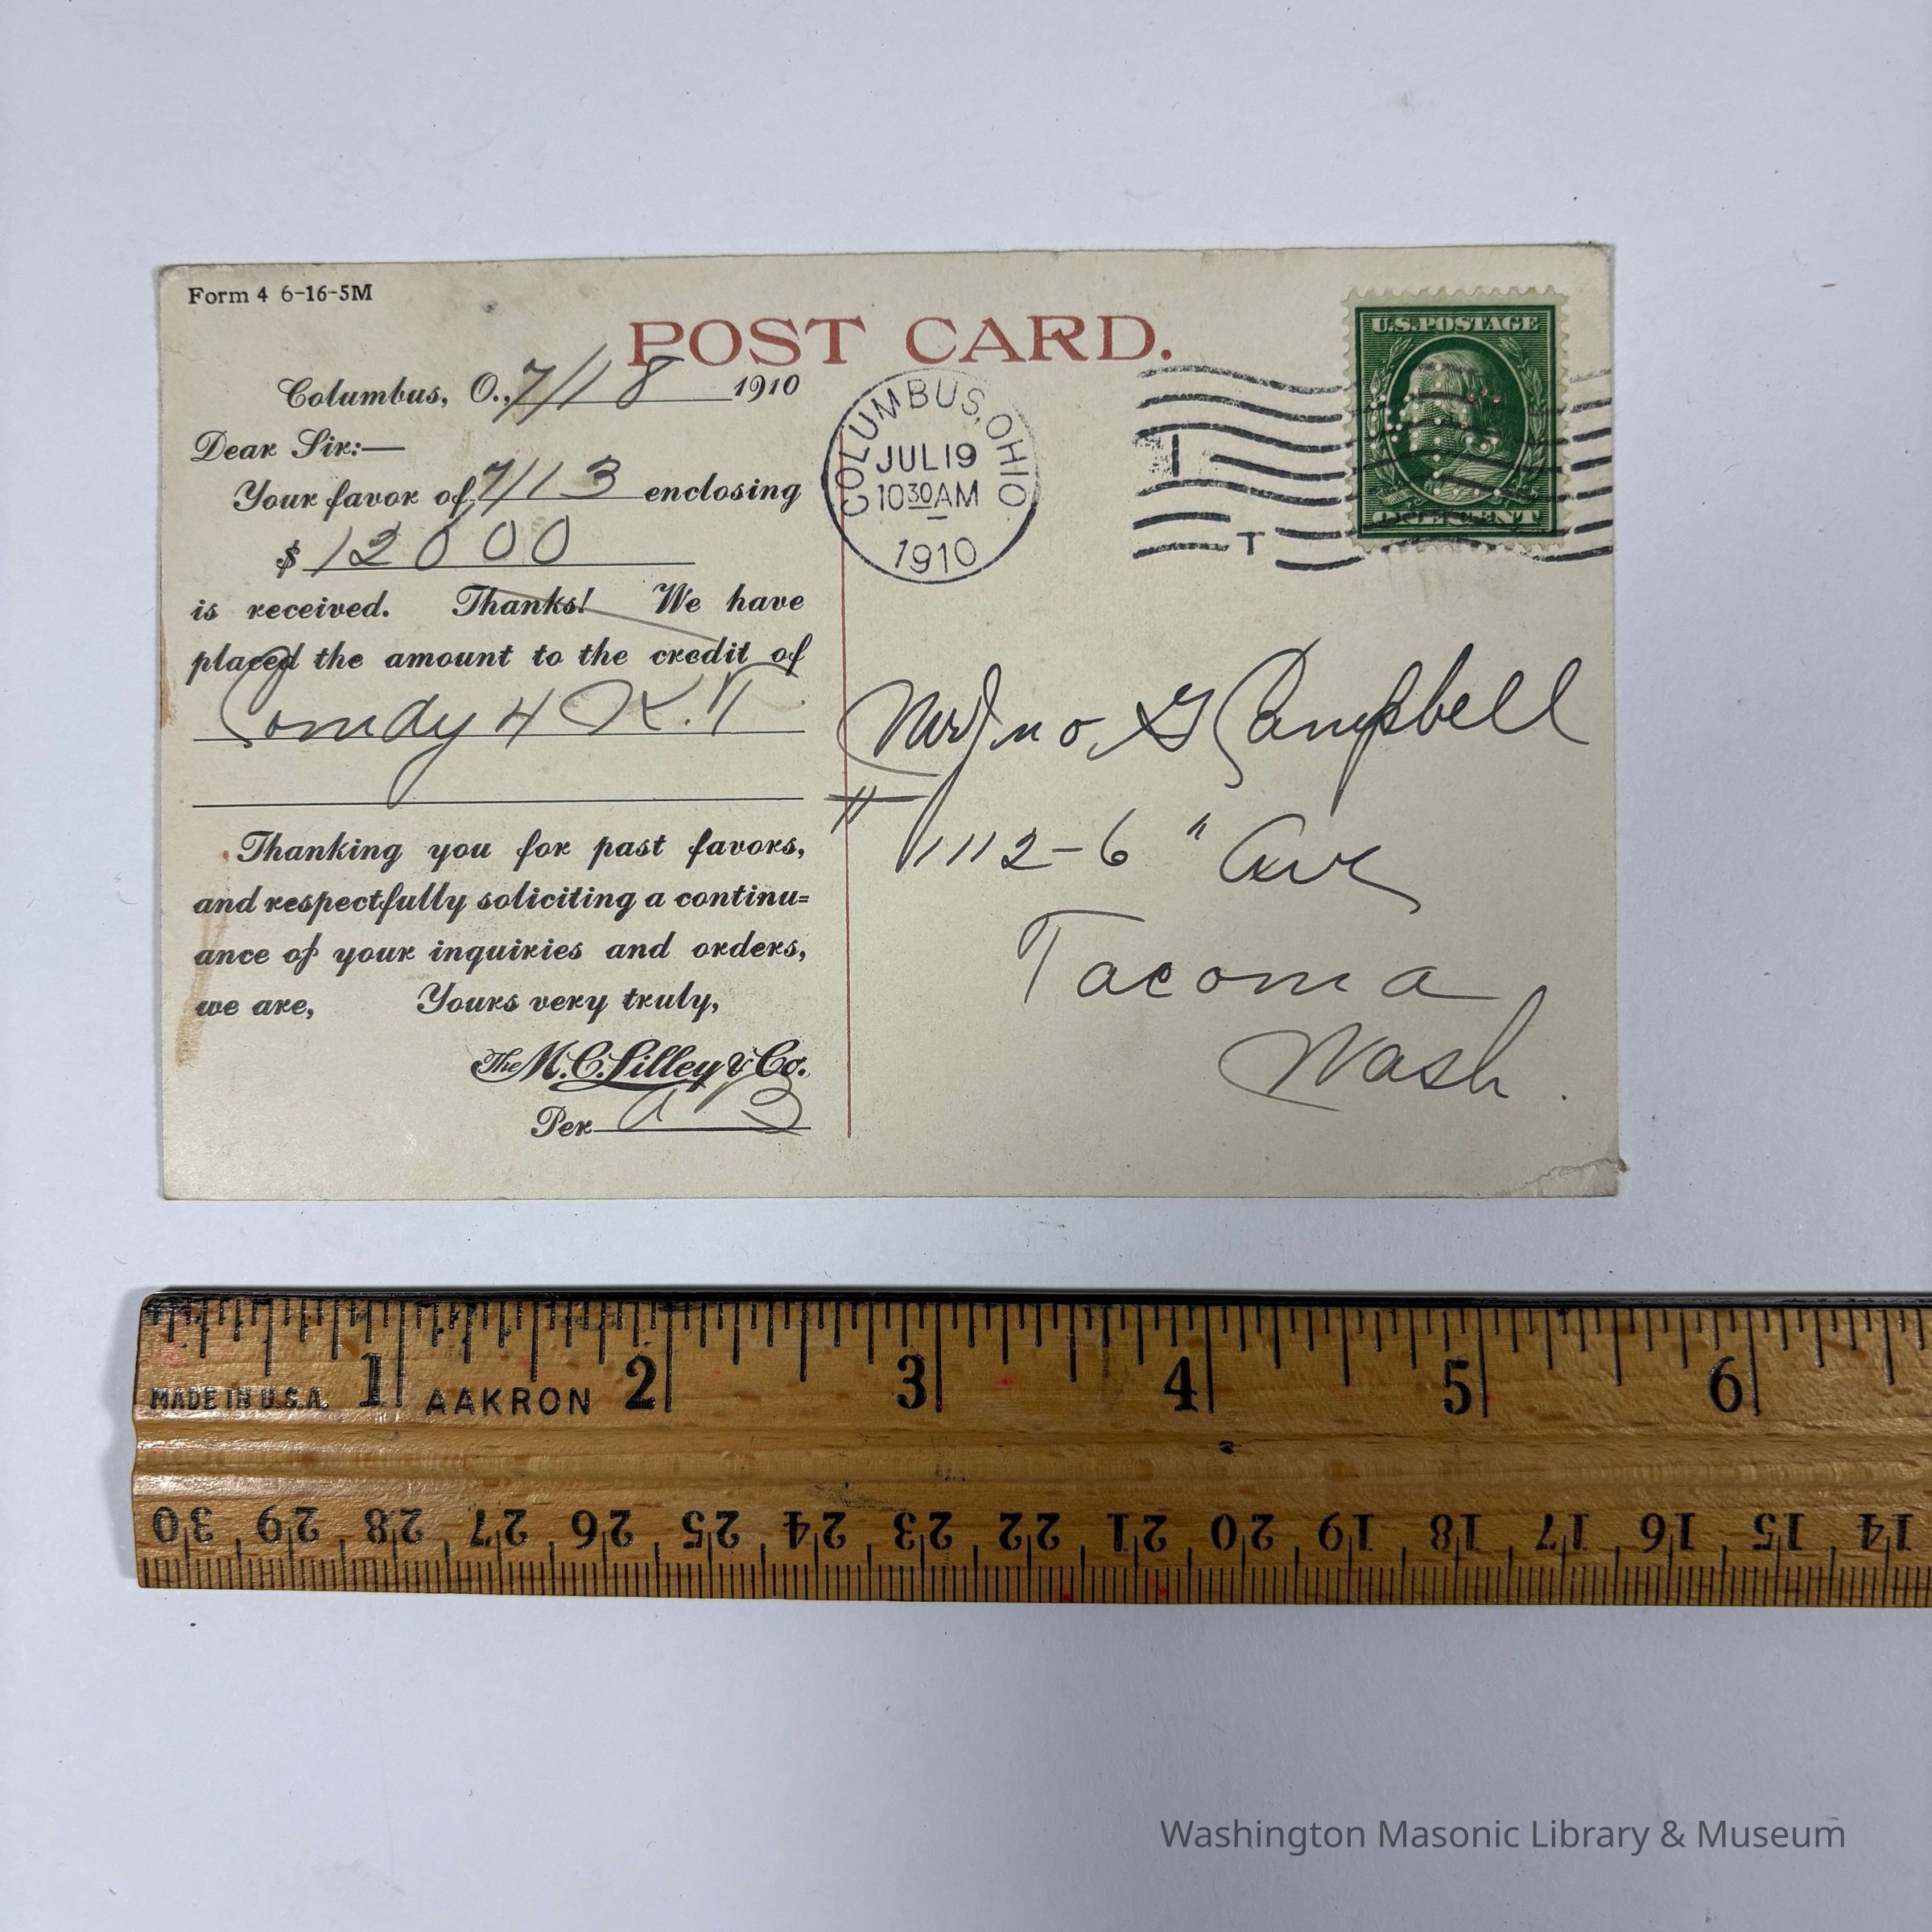 Form 4 6-16-5M
POST CARD.
Columbus, O., 7/18 1910
Dear Sir:—
Your favor of 7/13 enclosing
$ 12000
is received. Thanks! We have
placed the amount to the credit of
Comdy 4 K.T
Thanking you for past favors,
and respectfully soliciting a continu=
ance of your inquiries and orders,
we are, Yours very truly,
The M. C. Lilley & Co.
Per
COLUMBUS, OHIO
JUL 19
10 30 AM
1910
T
U.S. POSTAGE
ONE CENT
Mr Jno. G Campbell
1112-6" Ave
Tacoma
Wash.
1 2 3 4 5 6
MADE IN U.S.A. AAKRON
30 29 28 27 26 25 24 23 22 21 20 19 18 17 16 15 14
Washington Masonic Library & Museum